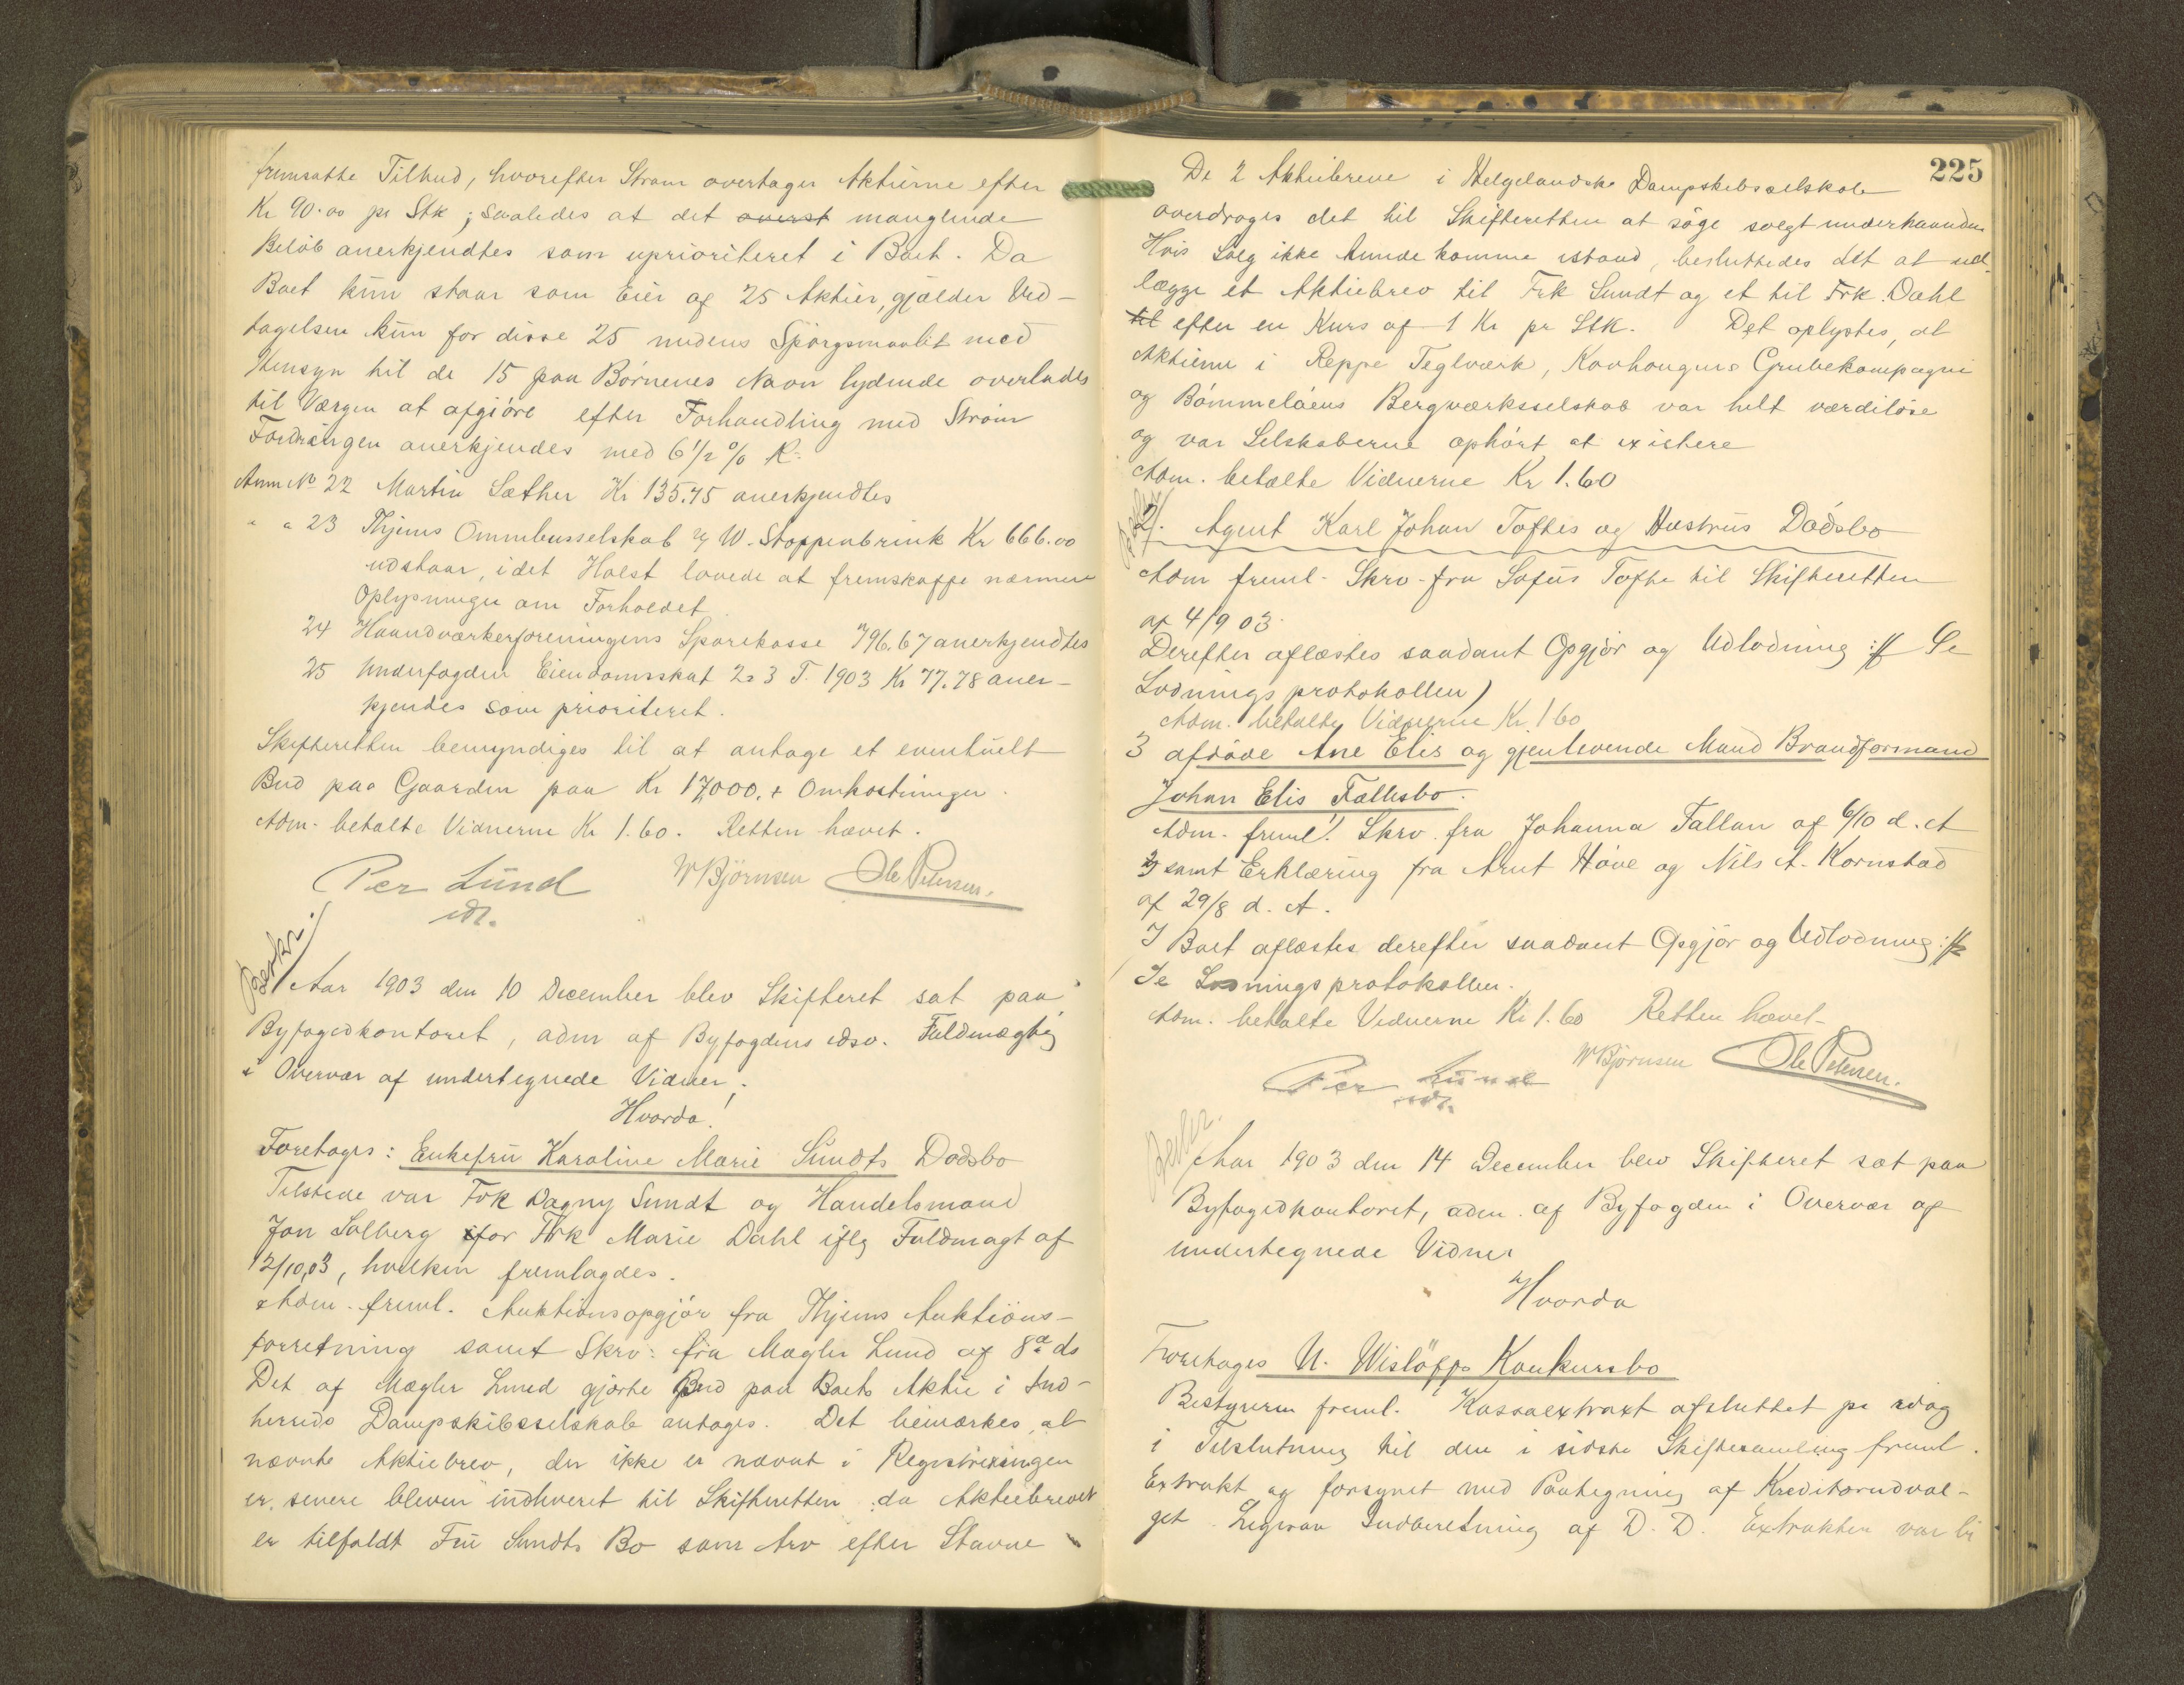 fremsatte Tilbud, hvorefter Strøm overtager Aktierne efter
Kr 90.00 pr Stk; saaledes at det overst manglende
Beløb anerkjendtes som uprioriteret i Boet. Da
Boet kun staar som Eier af 25 Aktier, gjælder Ved-
tagelsen kun for disse 25 medens Spørgsmaalet med
Hensyn til de 15 paa Børnenes Navn lydende overlades
til Værgen at afgjøre efter Forhandling med Strøm
Fordringen anerkjendes med 6 1/2 % R.
Anm No 22 Martin Sæther Kr 135.75 anerkjendtes
" " 23 Thjems Omnibusselskab v/ W. Stoppenbrink Kr 666.00
udstaar, idet Holst lovede at fremskaffe nærmere
Oplysninger om Forholdet.
24 Haandværkerforeningens Sparekasse 796.67 anerkjendtes
25 Underfogden Eiendomsskat 2 & 3 T. 1903 Kr 77.78 aner-
kjendes som prioriteret.
Skifteretten bemyndiges til at antage et eventuelt
Bud paa Gaarden paa Kr 17,000. + Omkostninger.
Adm. betalte Vidnerne Kr 1.60. Retten hævet.
Per Lund WBjörnsen Ole Petersen.
edsv.
Beskr.
Aar 1903 den 10 December blev Skifteret sat paa
Byfogedkontoret, adm af Byfogdens edsv. Fuldmægtig
i Overvær af undertegnede Vidner.
Hvorda!
Foretages: Enkefru Karoline Marie Sundts Dødsbo
Tilstede var Frk Dagny Sundt og Handelsmand
Jon Solberg for Frk Marie Dahl iflg Fuldmagt af
12/10 03, hvilken fremlagdes.
Adm. freml. Auktionsopgjør fra Thjems Auktions-
forretning samt Skrv. fra Mægler Lund af 8de ds
Det af Mægler Lund gjorte Bud paa Boets Aktie i Ind-
herreds Dampskibsselskab antages. Det bemærkes, at
nævnte Aktiebrev, der ikke er nævnt i Registreringen
er senere bleven indleveret til Skifteretten da Aktiebrevet
er tilfaldt Fru Sundts Bo som Arv efter Stavne
225
De 2 Aktiebreve i Helgelandske Dampskibsselskab
overdroges det til Skifteretten at søge solgt underhaanden
Hvis Salg ikke kunde komme istand, besluttedes det at ud-
lægge et Aktiebrev til Frk Sundt og et til Frk. Dahl
til efter en Kurs af 1 Kr pr Stk. Det oplystes, at
Aktierne i Reppe Teglværk, Kovhougens Grubekompagni
og Bömmelöens Bergværksselskab var helt værdiløse
og var Selskaberne ophørt at existere
Adm. betalte Vidnerne Kr 1.60
2/. Agent Karl Johan Toftes og Hustrus Dødsbo
Adm freml. Skrv. fra Sofus Tofte til Skifteretten
af 4/9 03.
Derefter aflæstes saadant Opgjør og Udlodning :// Se
Lodningsprotokollen)
Adm. betalte Vidnerne Kr 1.60
3 afdøde Ane Elis og gjenlevende Mand Brandformand
Johan Elis Fællesbo.
Adm. freml. Skrv. fra Johanna Fallan af 6/10 d. A
samt Erklæring fra Arnt Höve og Nils A. Kornstad
af 29/8 d. A.
I Boet aflæstes derefter saadant Opgjør og Udlodning ://
Se Lodningsprotokollen.
Adm. betalte Vidnerne Kr 1.60 Retten hævet
Per Lund WBjörnsen Ole Petersen.
edsv.
Beskr.
Aar 1903 den 14 December blev Skifteret sat paa
Byfogedkontoret, adm. af Byfogden i Overvær af
undertegnede Vidner
Hvorda
Foretages U. Wisløffs Konkursbo
Bestyreren freml. Kassaextrakt afsluttet pr idag
i Tilslutning til den i sidste Skiftesamling freml.
Extrakt og forsynet med Paategning af Kreditorudval-
get. Ligesaa Indberetning af D. D. Extrakten var bi